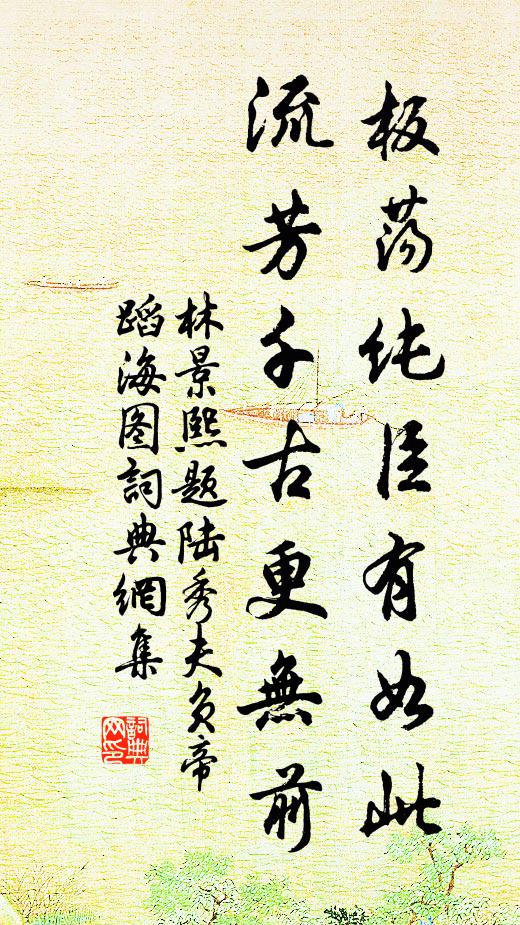 板荡纯臣有如此
流芳千古更無前
林景熙题陆秀夫负帝
蹈海图詞典網集
詞典
网印